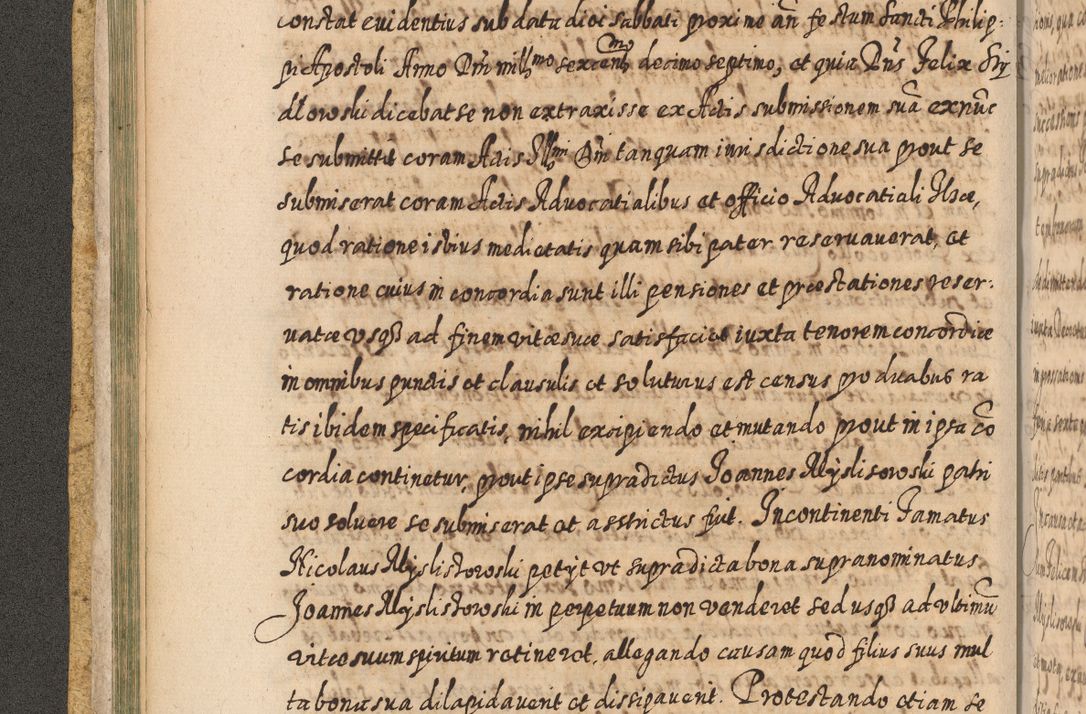 constat euidentius sub data diei sabbati proxime an̄ festum Sancti Philip:
pi Apostoli Anno Dn̄i mill<sup>mo</sup> sexcent<sup>mo</sup> decimo septimo, et quia Dn̄s Felix Szy
dłowski dicebat se non extraxisse ex Actis submissionem suā ex nūc
se submittit coram Actis Ill<sup>mi</sup> Dn̄i tanquam iurisdictione sua prout se
submiserat coram Actis Aduocatialibus et officio Aduocatiali Ilsce,
quod ratione istius medietatis quam sibi pater reseruauerat, et
ratione cuius in concordia sunt illi pensiones et præstationes reser:
uatæ vsq3 ad finem vitæ suæ satisfaciet iuxta tenorem concordiæ
in omnibus punctis et clausulis et soluturus est census pro ducabus ra
tis ibidem specificatis, nihil excipiendo et mutando prout in ipsa cō
cordia continetur, prout ipse supradictus Joannes Myslisowski patri
suo soluere se submiserat et asstrictus fuit. Incontinenti Famatus
Nicolaus Myslisowski petyt vt supradicta bona supranominatus
Joannes Myslisowski in perpetuum non venderet sed usq3 ad vltimū
vitæ suum spiritum retineret, allegando causam quod filius suus mul
ta bona sua dilapidauerit et dissipauerit. Protestando etiam se